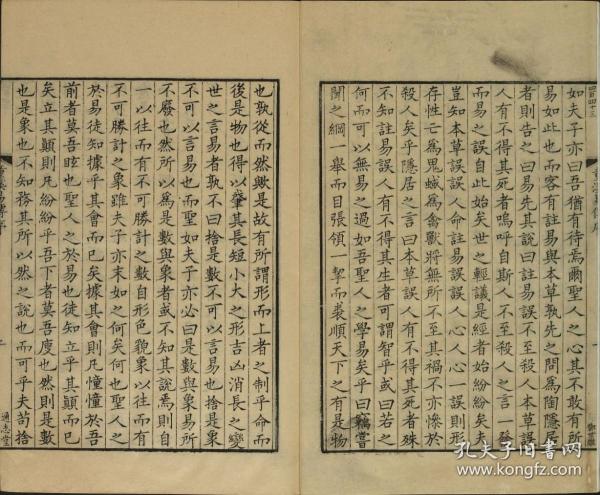 如夫子亦曰吾猶有待焉爾聖人之心其不敢有所
易如此也而客有註易與本草孰先之問爲陶隱居
者則告之曰易先其說曰註易誤不至殺人本草誤
人有不得其死者嗚呼自斯人不至殺人之言一發
而易之誤自此始矣世之輕議是經者始紛紛矣夫
豈知本草誤誤人命註易誤誤人心人心一誤則形
存性亡爲鬼蜮爲禽獸將無所不至其禍不亦慘於
殺人矣乎隱居之言曰本草誤人有不得其死者殊
不知註易誤人有不得其生者可謂智乎或曰若之
何而可以無易之過如吾聖人之學易矣乎曰竊嘗
聞之綱一舉而目張領一挈而裘順天下之有是物
也孰從而然歟是故有所謂形而上者之制乎命而
後是物也得以肇其長短小大之形吉凶消長之變
世之言易者孰不曰捨是數不可以言易也捨是象
不可以言易也而聖如夫子亦必曰是數與象易所
不廢也然所以爲是數與象者或不知其說焉則自
一以往而有不可勝計之數自形色貌象以往而有
不可勝計之象雖夫子亦末如之何矣何也聖人之
於易徒知據乎其會而已矣據其會則凡憧憧於吾
前者莫吾眩也聖人之於易也徒知立乎其顛而已
矣立其顛則凡紛紛乎吾下者莫吾廋也然則是數
也是象也不知務其所以然之說也而可乎夫苟捨
通志堂
孔夫子旧书网
www.kongfz.com